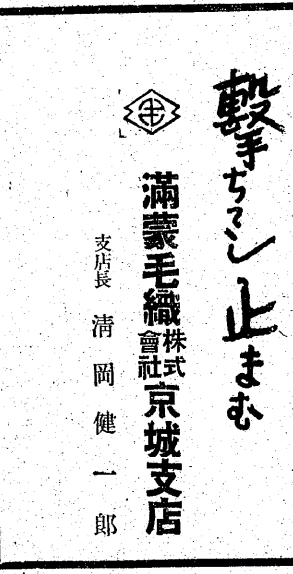 撃ちてし止まむ
滿蒙毛織株式會社京城支店
支店長 淸岡健一郎